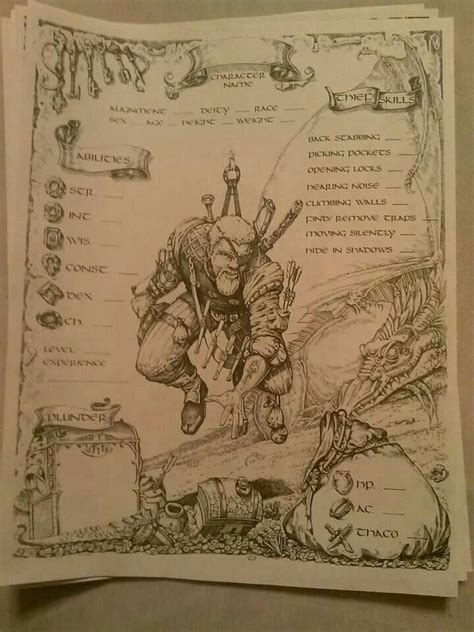 CHARACTER
NAME
ALIGNMENT ___ DEITY ___ RACE ___
SEX __ AGE __ HEIGHT ___ WEIGHT ___
THIEF SKILLS
BACK STABBING ___
PICKING POCKETS ___
OPENING LOCKS ___
HEARING NOISE ___
CLIMBING WALLS ___
FIND/ REMOVE TRAPS ___
MOVING SILENTLY ___
HIDE IN SHADOWS
ABILITIES
STR. ___
INT ___
WIS. ___
CONST. ___
DEX ___
CH ___
LEVEL ___
EXPERIENCE
PLUNDER
HP. ___
AC. ___
THACO ___